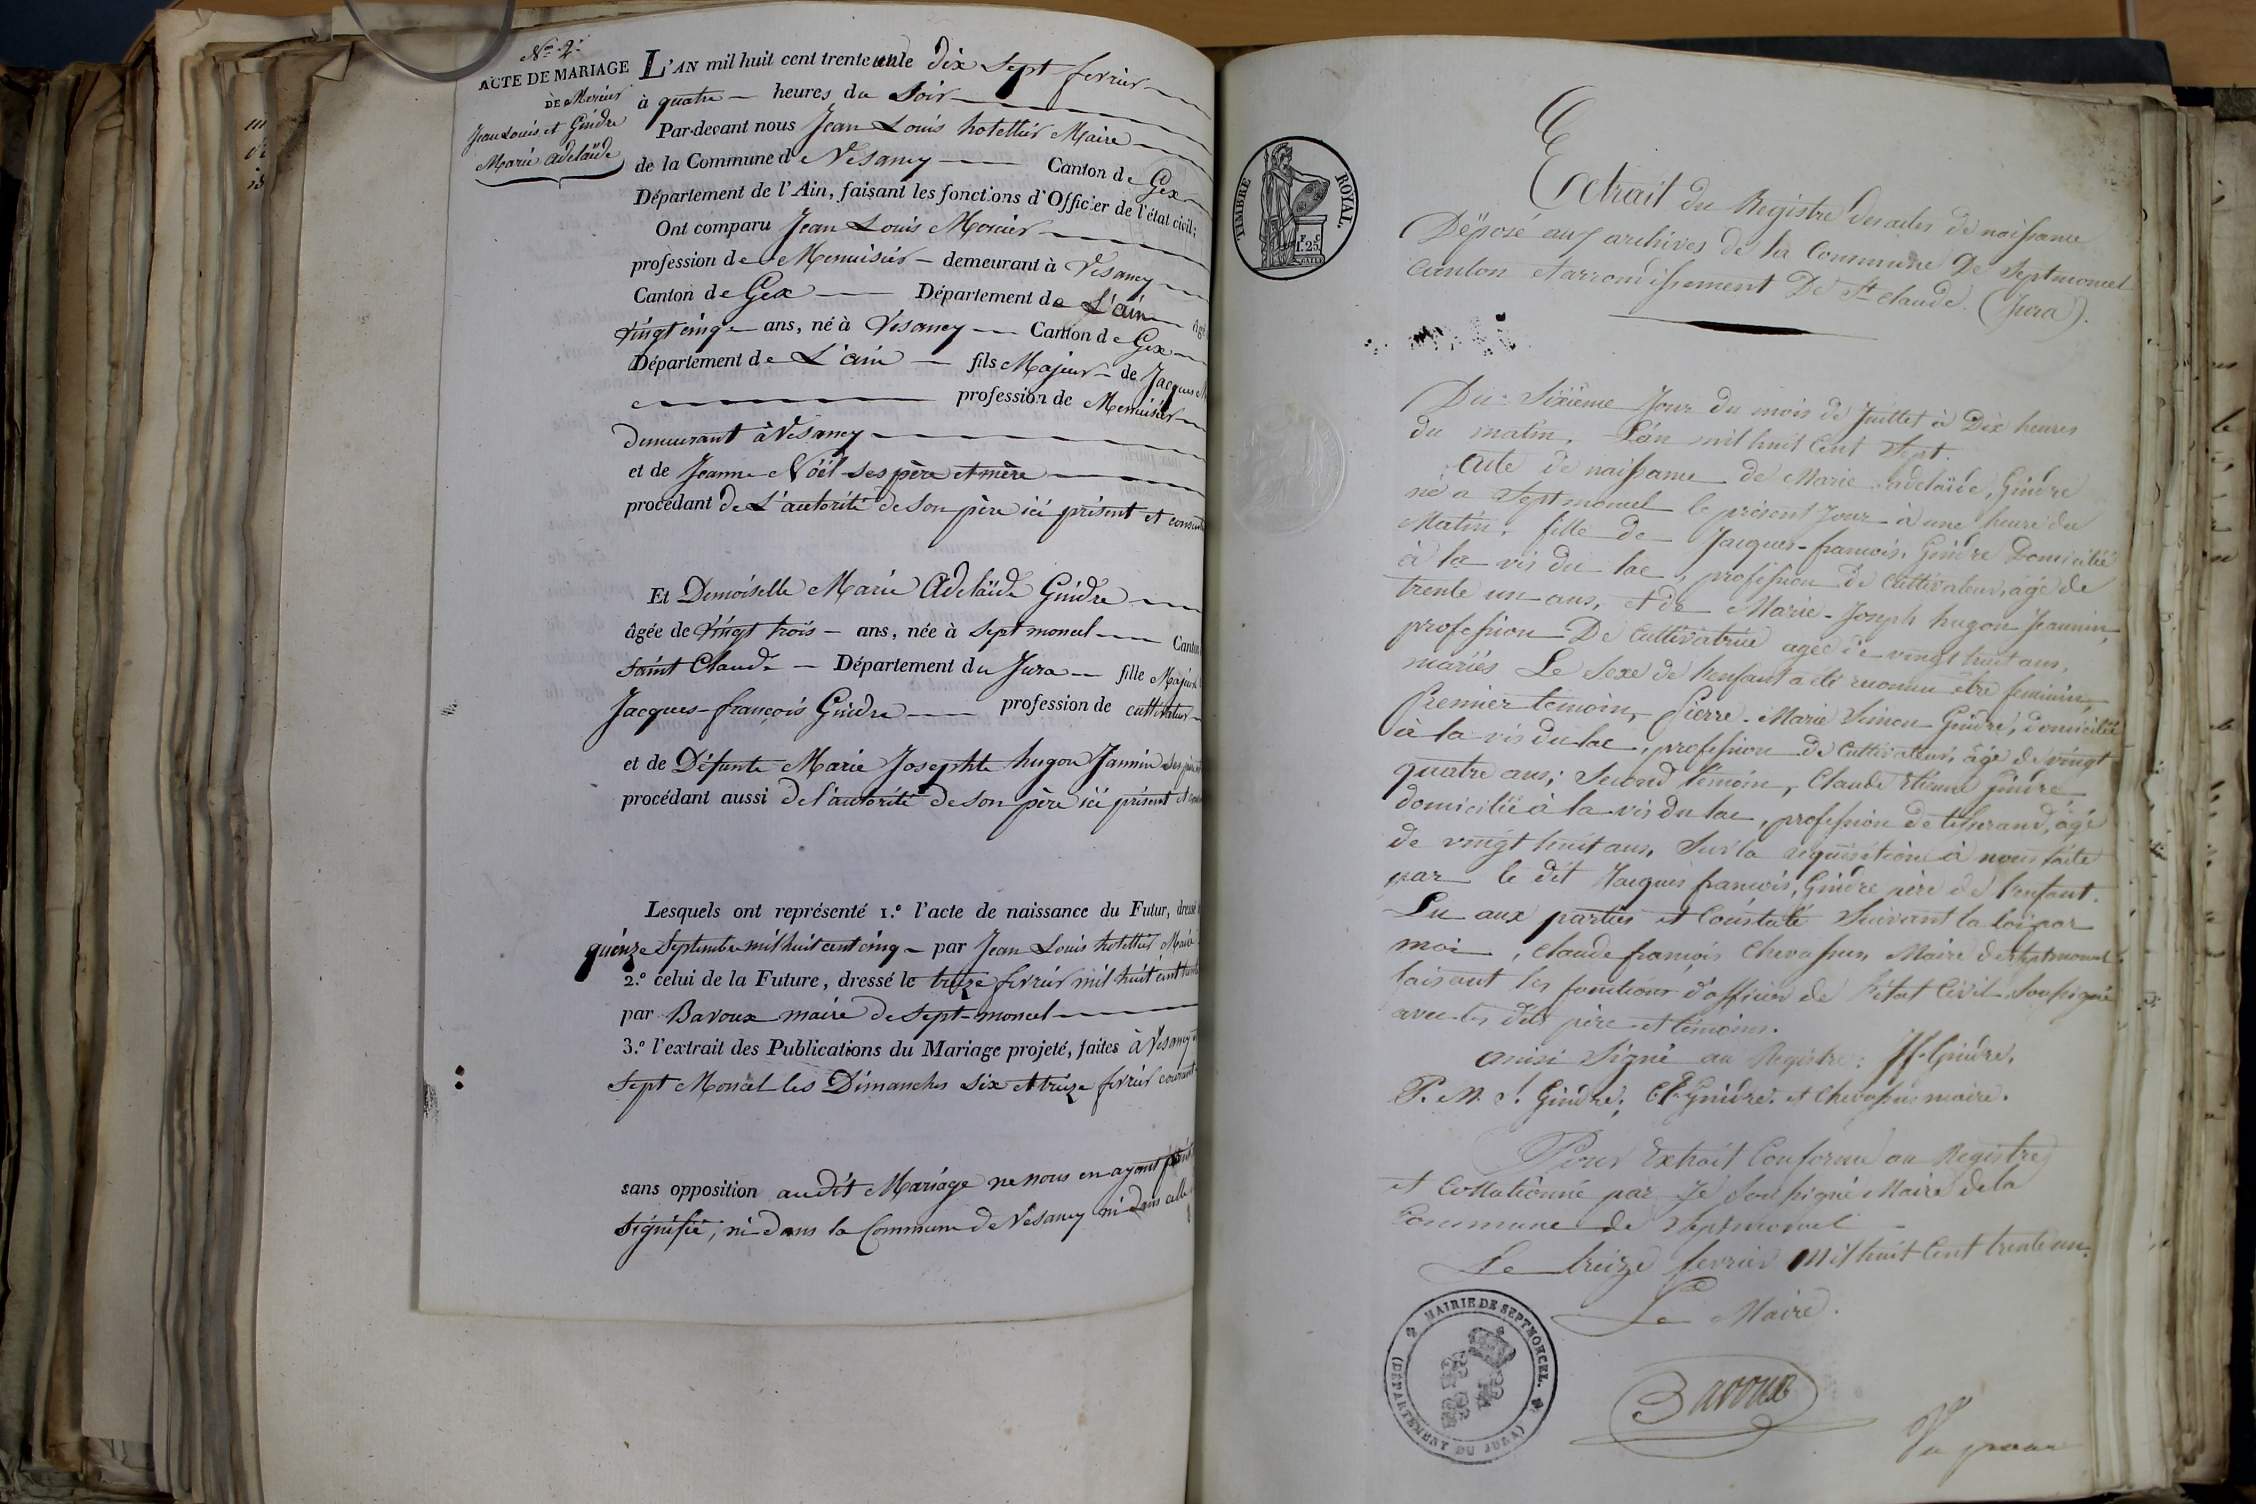 N.° 2.
ACTE DE MARIAGE
DE Mercier
Jean Louis et Gindre
Marie adelaïde
L'AN mil huit cent trente un le dix sept fevrier
à quatre heures du Soir
Par-devant nous Jean Louis hotellier Maire
de la Commune d Vesancy Canton de Gex
Département de l'Ain, faisant les fonctions d'Officier de l'état civil;
Ont comparu Jean Louis Mercier
profession de Menuisier demeurant à Vesancy
Canton de Gex Département de L'ain âgé
vingt cinq ans, né à Vesancy Canton de Gex
Département de L'ain fils Majeur de Jacques M
profession de Menuisier
demeurant à Vesancy
et de Jeanne Noël ses père et mère
procédant de L'autorité de son père ici présent et consent
Et Demoiselle Marie Adelaïde Gindre
âgée de vingt trois ans, née à Sept moncel Canton
saint Claude Département du Jura fille Majeure
Jacques-françois Gindre profession de cultivateur
et de Défunte Marie Josephte hugon Jannin ses père
procédant aussi de l'autorité de son père ici présent et
Lesquels ont représenté 1.° l'acte de naissance du Futur, dressé
quinze Septembre mil huit cent cinq par Jean Louis hotellier Maire
2.° celui de la Future, dressé le treize fevrier mil huit cent trente
par Bavoux maire de Sept-moncel
3.° l'extrait des Publications du Mariage projeté, faites à Vesancy et
Sept Moncel les Dimanches Six et treize fevrier courant
sans opposition audit Mariage ne nous en ayant point
signifié, ni dans la Commune de Vesancy ni dans celle
TIMBRE ROYAL
F. C
1. 25
Extrait du Registre des actes de naissance
Déposé aux archives de la Commune De Septmoncel
Canton et arrondissement De St Claude (Jura).
Du Sixième Jour du mois de Juillet à Dix heures
du matin, L'an mil huit Cent Sept.
Acte de naissance de Marie adelaïde, Gindre
né a Septmoncel le présent Jour à une heure du
Matin, fille de Jacques-francois, Gindre Domicilié
à la vis du lac, profession de Cultivateur, âgé de
trente un ans, et de Marie-Joseph hugon Jeannin,
profession De Cultivatrice agée de vingt huit ans,
mariés Le Sexe de l'enfant a été reconnu être feminin,
Premier temoin, Pierre-Marie Simon Gindre, domicilié
à la vis du lac, profession de Cultivateur, âgé de vingt
quatre ans; Second temoin, Claude Etienne Gindre
domicilié à la vis du lac, profession de tisserand, âgé
de vingt huit ans, Sur la réquisition à nous faite
par le dit Jacques francois, Gindre père de l'enfant.
Lu aux parties et Constaté Suivant la loi par
moi, Claude françois Chevassus, Maire de Septmoncel
faisant les fonctions d'officier de l'état Civil Soussigné
avec les dits père et témoins.
ainsi Signé au Registre: J f. Gindre,
P. M. S. Gindre; C. E. Gindre. et Chevassus maire.
Pour Extrait Conforme au Registre
et Collationné par Je Soussigné Maire de la
Commune de Septmoncel
Le treize fevrier Mil huit Cent trente un.
Le Maire.
MAIRIE DE SEPTMONCEL.
(DÉPARTEMENT DU JURA)
Bavoux
Vu pour